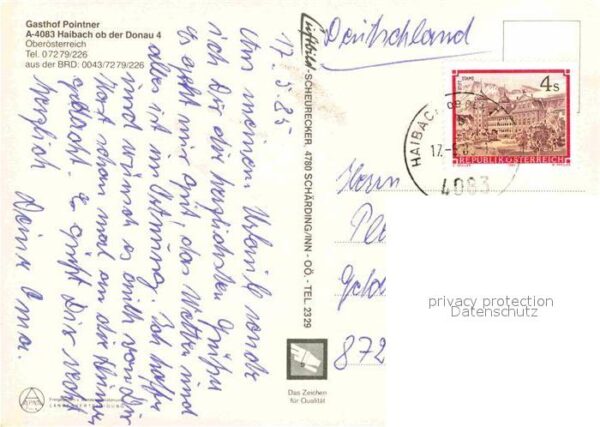 Gasthof Pointner
A-4083 Haibach ob der Donau 4
Oberösterreich
Tel. 07279/226
aus der BRD: 0043/7279/226
17.5.85
Aus meinem Urlaub sende
ich Dir die herzlichsten Grüße
Es geht mir gut, das Wetter und
alles ist in Ordnung. Ich hoffe
und wünsch es auch von Dir
Hast schon mal an der
gedacht. Es grüßt Dich recht
herzlich Deine Oma.
Luftbild-SCHEURECKER, 4780 SCHÄRDING/INN - OÖ. - TEL. 2329
Deutschland
4 S
STAMS
REPUBLIK ÖSTERREICH
HAIBACH
17.-5.8
4083
Herrn
872
privacy protection
Datenschutz
Das Zeichen
für Qualität